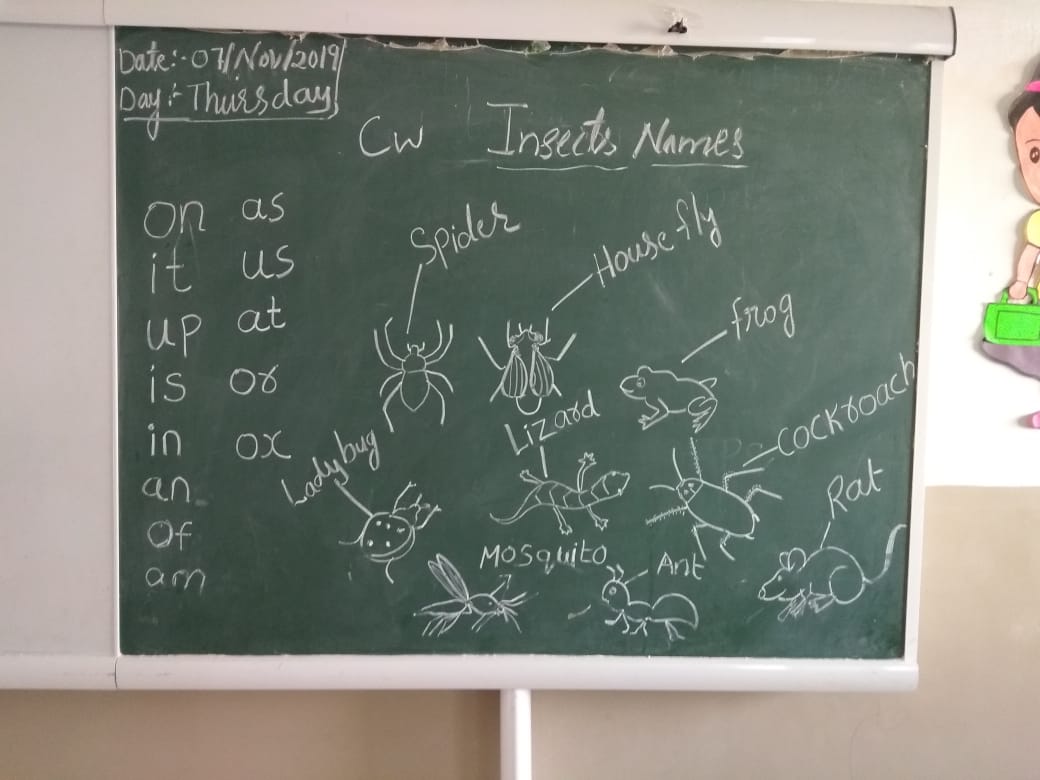 Date:- 07/Nov/2019
Day:- Thursday
CW Insects Names
on as
it us
up at
is or
in ox
an
of
am
Spider
Housefly
frog
Lizard
Cockroach
Ladybug
Rat
Mosquito
Ant